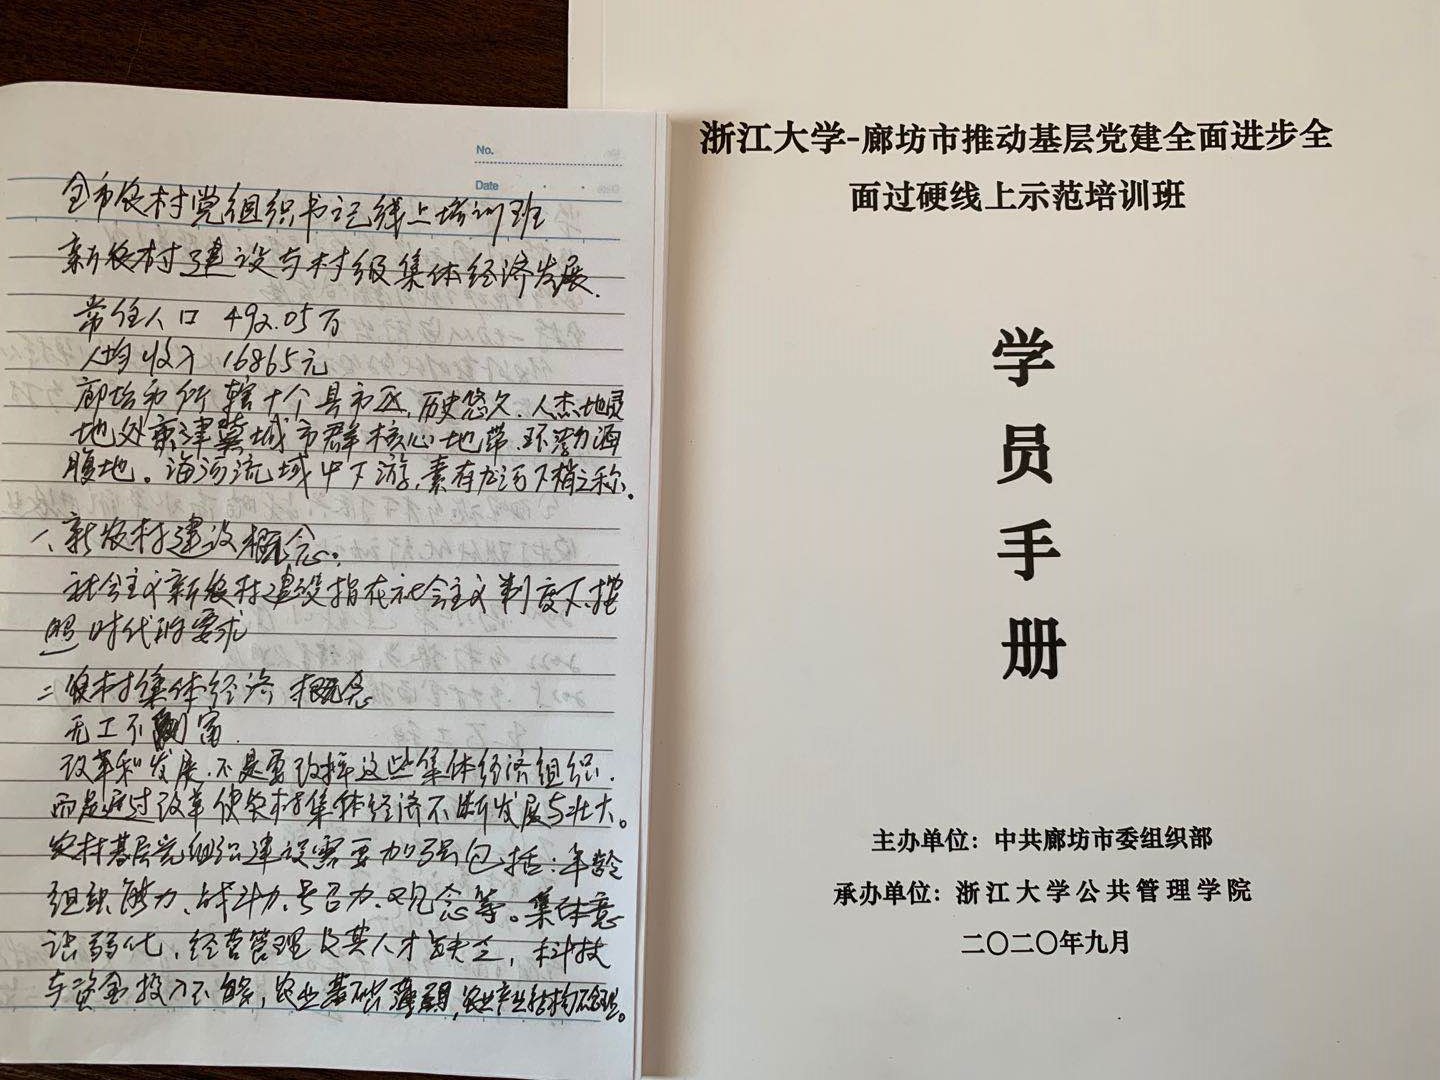 No.
Date
全市农村党组织书记线上培训班
新农村建设与村级集体经济发展.
常住人口 492.05万
人均收入16865元
廊坊市所辖十个县市区,历史悠久.人杰地灵
地处京津冀城市群核心地带.环渤海
腹地。海河流域中下游,素有九河下梢之称。
一、新农村建设概念。
社会主义新农村建设指在社会主义制度下,按
照时代的要求
二 农村集体经济概念
无工不富.
改革和发展.不是要改掉这些集体经济组织.
而是通过改革使农村集体经济不断发展与壮大。
农村基层党组织建设需要加强包括:年龄
组织能力、战斗力、号召力、观念等。集体意
识弱化,经营管理及其人才缺乏,科技
与资金投入不够,农业基础薄弱,农业产业结构不合理。
浙江大学-廊坊市推动基层党建全面进步全
面过硬线上示范培训班
学
员
手
册
主办单位：中共廊坊市委组织部
承办单位：浙江大学公共管理学院
二〇二〇年九月